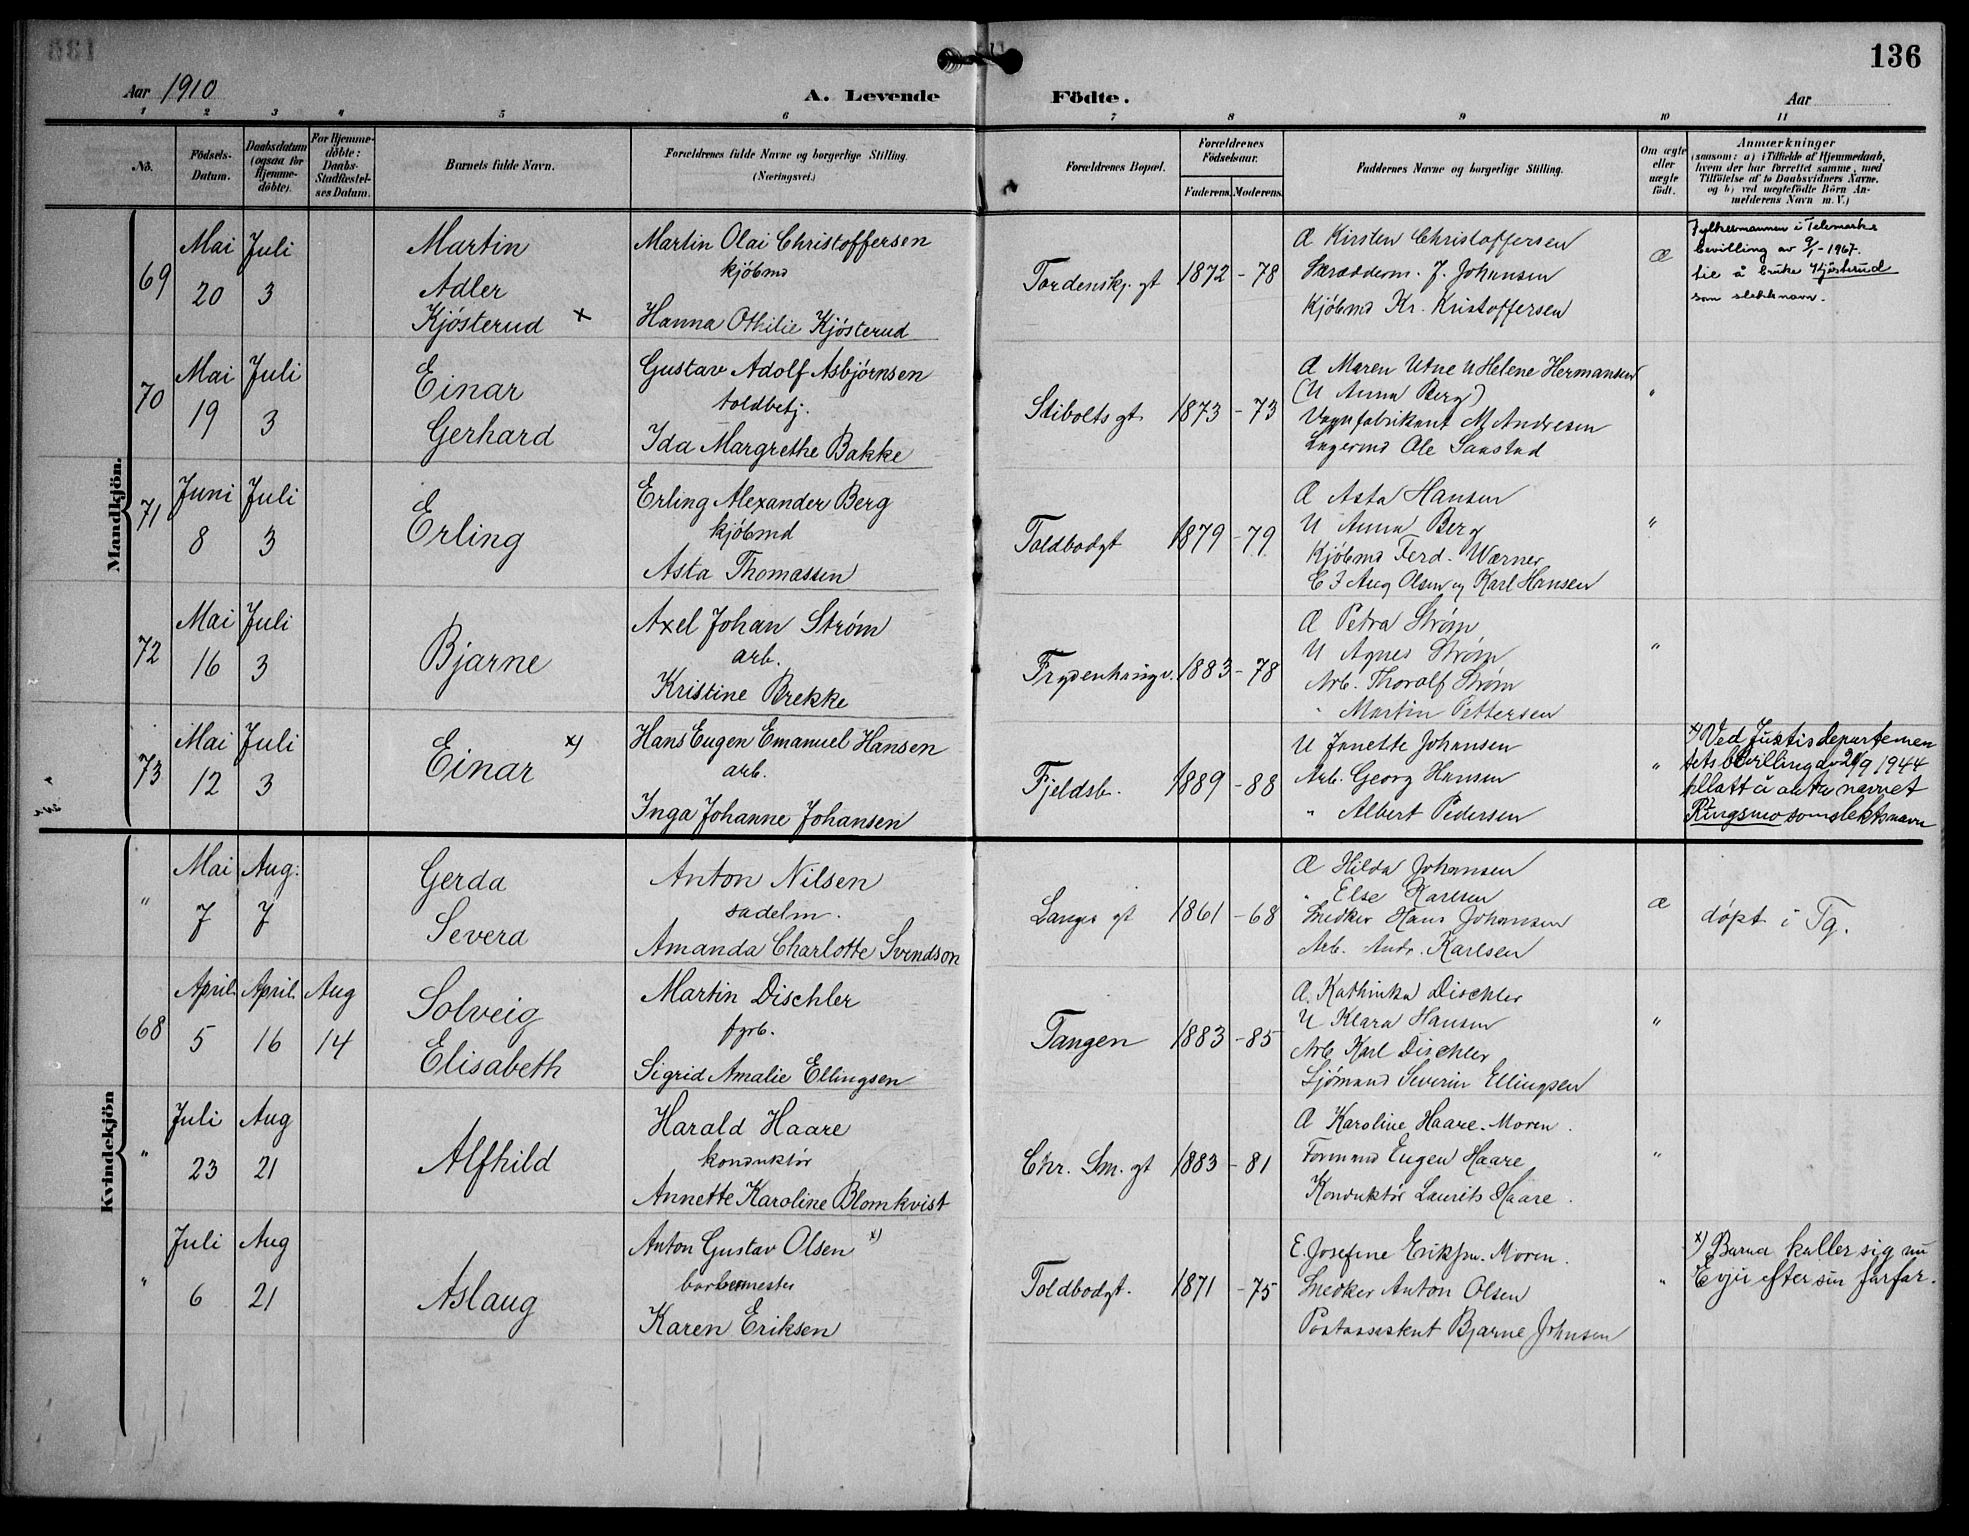 136
Aar 1910
A. Levende Födte.
Aar
1 2 3 4 5 6 7 8 9 10 11
No.
Födsels-Datum.
Daabsdatum (ogsaa for Hjemme-döbte).
For Hjemme-döbte: Daabs-Stadfæstel-ses Datum.
Barnets fulde Navn.
Forældrenes fulde Navne og borgerlige Stilling.
(Næringsvei.)
Forældrenes Bopæl.
Forældrenes Födselsaar.
Faderens. Moderens.
Faddernes Navne og borgerlige Stilling.
Om ægte eller uægte födt.
Anmærkninger
(saasom: a) i Tilfælde af Hjemmedaab, hvem der har forrettet samme, med Tilföielse af to Daabsvidners Navne, og b) ved uægtefödte Börn An-melderens Navn m. V.)
Mandkjön.
69
Mai 20
Juli 3
Martin
Adler
Kjósterud x
Martin Olai Christoffersen
kjöbmd
Hanna Othilie Kjósterud
Tordenskj. gt
1872 - 78
Æ Kirsten Christoffersen
Skrædderm. J. Johansen
Kjöbmd Kr. Kristoffersen
Æ
Fylkesmannen i Telemarks
bevilling av 9/1-1967.
til å bruke Kjösterud
som slektsnavn.
70
Mai 19
Juli 3
Einar
Gerhard
Gustav Adolf Asbjørnsen
toldbetj.
Ida Margrethe Bakke
Stibolts gt
1873 - 73
Æ Maren Utne U Helene Hermansen
(U Anna Berg)
Vognfabrikant M Andresen
Lagermd Ole Saastad
"
71
Juni 8
Juli 3
Erling
Erling Alexander Berg
kjöbmd
Asta Thomassen
Toldbodgt
1879 - 79
Æ Asta Hansen
U Anna Berg
Kjöbmd Ferd. Wærner
E J Aug Olsen og Karl Hansen
"
72
Mai 16
Juli 3
Bjarne
Axel Johan Strøm
arb.
Kristine Brekke
Frydenhaugv.
1883 - 78
Æ Petra Strøm
U Agnes Strøm
Arb. Thoralf Strøm
" Martin Pettersen
"
73
Mai 12
Juli 3
Einar x)
Hans Eugen Emanuel Hansen
arb.
Inga Johanne Johansen
Fjeldsb.
1889 - 88
U Janette Johansen
Arb. Georg Hansen
" Albert Pedersen
"
x) Ved Justisdepartemen
tets bevilling av 21/9 1944
tillatt å anta navnet
Ringsmo som slektsnavn
Kvindekjön
"
Mai 7
Aug: 7
Gerda
Severa
Anton Nilsen
sadelm.
Amanda Charlotte Svendson
Langes gt
1861 - 68
Æ Hilda Johansen
" Else Karlsen
Snedker Hans Johansen
Arb. Andr. Karlsen
Æ
døpt i Tg.
68
April 5
April 16
Aug 14
Solveig
Elisabeth
Martin Dischler
fyrb.
Sigrid Amalie Ellingsen
Tangen
1883 - 85
Æ. Kathinka Dischler
U Klara Hansen
Arb. Karl Dischler
Sjömand Severin Ellingsen
"
"
Juli 23
Aug 21
Alfhild
Harald Haare
konduktör
Annette Karoline Blomkvist
Chr. Sm. gt
1883 - 81
Æ Karoline Haare. Moren.
Formand Eugen Haare
Konduktör Laurits Haare.
"
"
Juli 6
Aug 21
Aslaug
Anton Gustav Olsen x)
barbermester
Karen Eriksen
Toldbodgt.
1871 - 75
E. Josefine Eriksen. Moren.
Snedker Anton Olsen
Postassistent Bjarne Johnsen
"
x) Barna kaller sig nu
Evju efter sin farfar.